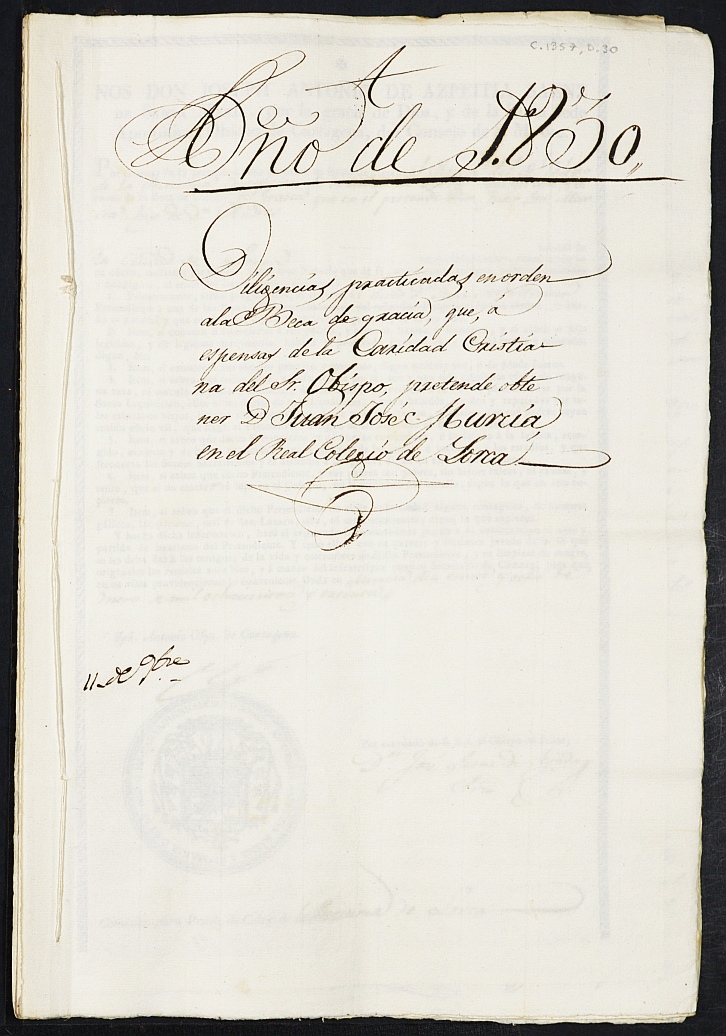 C.1357, D.30
Año de 1830,,
Diligencias practicadas en orden
a la Beca de gracia, que, á
espensas de la Caridad Cristia-
na del Sr. Obispo, pretende obte
ner D. Juan José Murcia
en el Real Colegio de Lorca
11 de 9bre